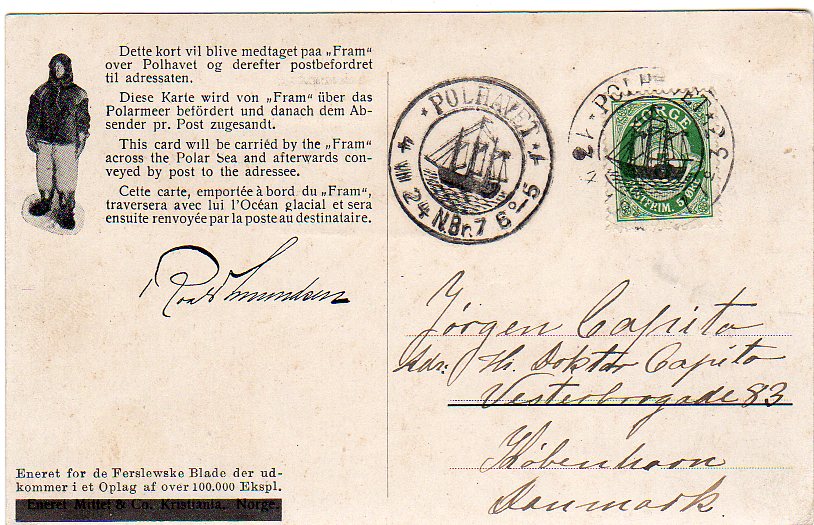 Dette kort vil blive medtaget paa „Fram“
over Polhavet og derefter postbefordret
til adressaten.
Diese Karte wird von „Fram“ über das
Polarmeer befördert und danach dem Ab-
sender pr. Post zugesandt.
This card will be carried by the „Fram“
across the Polar Sea and afterwards con-
veyed by post to the adressee.
Cette carte, emportée à bord du „Fram“,
traversera avec lui l'Océan glacial et sera
ensuite renvoyée par la poste au destinataire.
Roald Amundsen
Eneret for de Ferslewske Blade der ud-
kommer i et Oplag af over 100.000 Ekspl.
Eneret Mittet & Co. Kristiania. Norge.
POLHAVET
4 VIII 24 N.Br. 7 6°-5
NORGE
5
Jörgen Capito
Adr: Hr. Doktor Capito
Vesterbrogade 83
København
Danmark.